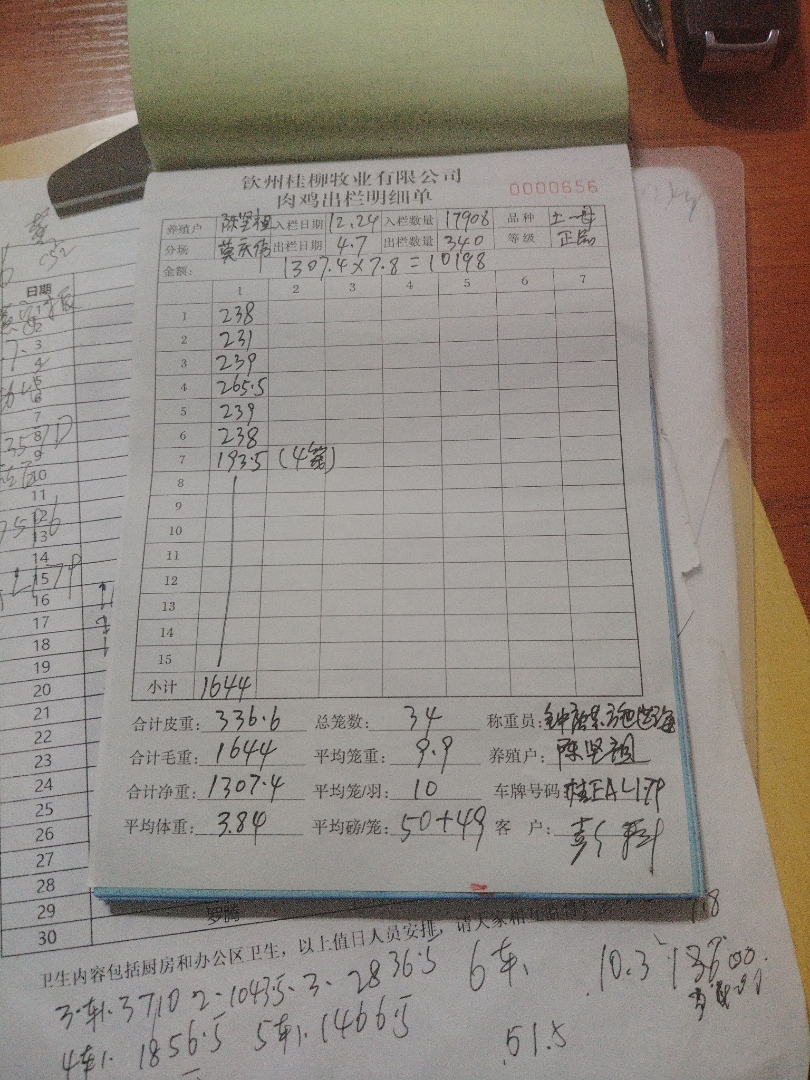 钦州桂柳牧业有限公司
肉鸡出栏明细单
0000656
养殖户 陈坚祖 入栏日期 12.24 入栏数量 17908 品种 土一母
分场 莫庆伟 出栏日期 4.7 出栏数量 340 等级 正品
金额: 1307.4×7.8=10198
1 2 3 4 5 6 7
1 238
2 231
3 239
4 265.5
5 239
6 238
7 193.5 (4笼)
8
9
10
11
12
13
14
15
小计 1644
合计皮重: 336.6 总笼数: 34 称重员:
合计毛重: 1644 平均笼重: 9.9 养殖户: 陈坚祖
合计净重: 1307.4 平均笼/羽: 10 车牌号码:
平均体重: 3.84 平均磅/笼: 50+49 客 户:
日期
1
2
3
4
5
6
7
8
9
10
11
12
13
14
15
16
17
18
19
20
21
22
23
24
25
26
27
28
29 罗腾
30
卫生内容包括厨房和办公区卫生，以上值日人员安排，请大家相互监督
3.车1.3710 2.1043.5.3.2836.5 6车1
4车1. 1856.5 5车1.1466.5
51.5
10.3